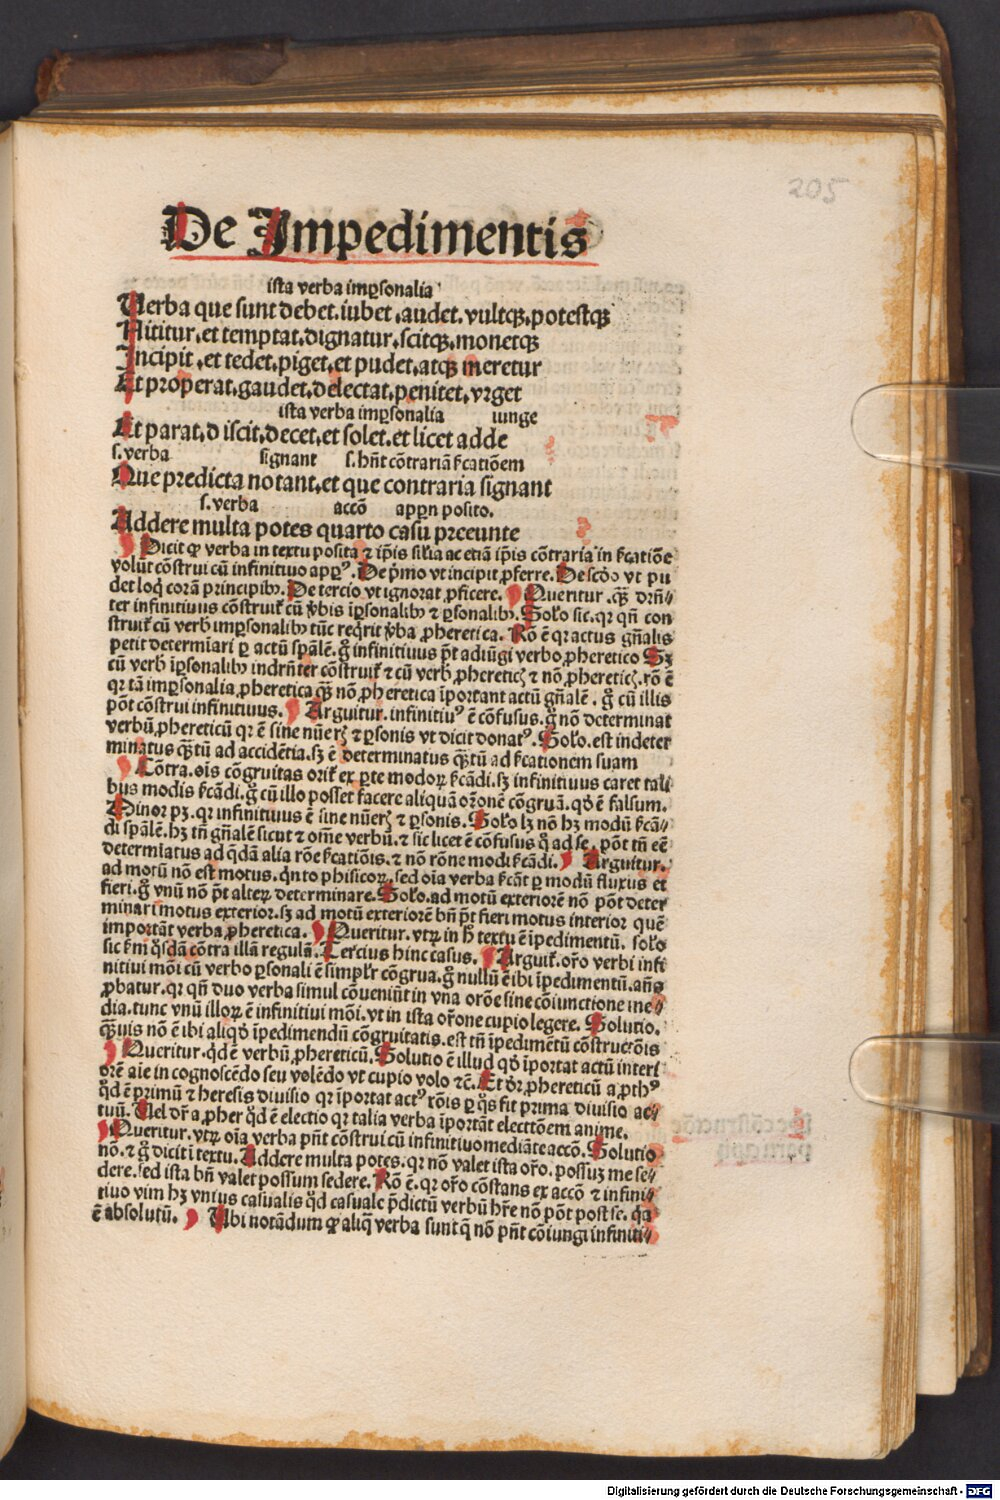 205
De Impedimentis
ista verba imꝑsonalia
Verba que sunt debet. iubet. audet. vultqꝫ. potestqꝫ
Nititur. et temptat. dignatur. scitqꝫ. monetqꝫ
Incipit. et tedet. piget. et pudet. atqꝫ meretur
Et properat. gaudet. delectat. penitet. vrget
ista verba imꝑsonalia iunge
Et parat. discit. decet. et solet. et licet adde
s. verba signant s. hñt cõtrariã ſ̉catiõem
Que predicta notant. et que contraria signant
s. verba accõ appñ posito.
Addere multa potes quarto casu prceunte
Dicit ꝙ verba in textu posita ⁊ ip̃is sil̃ia ac etiã ip̃is cõtraria in ſ̉catiõe
volũt cõstrui cũ infinitiuo appꝰ. De p̃mo vt incipit ꝓferre. De scd̃o vt pu
det loqͥ corã principibꝰ. De tercio vt ignorat ꝓficere. Queritur. qꝫ̃ drñ⸗
ter infinitiuus cõstruit̉ cũ ṽbis iꝑsonalibꝰ ⁊ ꝑsonalibꝰ. Solo sic. qꝛ qñ con
struit̉ cũ verb̉ imꝑsonalibꝰ tũc reqͥrit ṽba ꝓheretica. Rõ ẽ qꝛ actus gñalis
petit determiari ꝑ actũ spãlẽ. g̊ infinitiuus p̃t adiũgi verbo ꝓheretico Sꝫ
cũ verb̉ iꝑsonalibꝰ indrñter cõstruit̉ ⁊ cũ verb̉ ꝓheretic̉ ⁊ nõ ꝓheretic̉. rõ ẽ
qꝛ tã imꝑsonalia ꝓheretica qꝫ̃ nõ ꝓheretica ĩportant actũ gñalẽ. g̊ cũ illis
põt cõstrui infinitiuus. Arguitur. infinitiuꝰ ẽ cõfusus. g̊ nõ determinat
verbũ ꝓhereticũ qꝛ ẽ sine nũer̉ ⁊ ꝑsonis vt dicit donatꝰ. Solo. est indeter
minatus qꝫ̃tũ ad accidẽtia. sꝫ ẽ determinatus qꝫ̃tũ ad ſ̉cationem suam
Cõtra. oĩs cõgruitas orit̉ ex ꝑte modoꝝ ſ̉cãdi. sꝫ infinitiuus caret tali
bus modis ſ̉cãdi. g̊ cũ illo posset facere aliquã orõnẽ cõgruã. qđ ẽ falsum.
Minor pꝫ. qꝛ infinitiuus ẽ sine nũer̉ ⁊ ꝑsonis. Solo lꝫ nõ hꝫ modũ ſ̉cã⸗
di spãlẽ. hꝫ tñ gñalẽ sicut ⁊ om̃e verbũ. ⁊ sic licet ẽ cõfusus q̊ ad se. põt tñ eẽ
determĩatus ad qͥdã alia rõe ſ̉catiõis. ⁊ nõ rõne modi ſ̉cãdi. Arguitur.
ad motũ nõ est motus. qͥnto phisicoꝝ. sed oĩa verba ſ̉cãt ꝑ modũ fluxus et
fieri. g̊ vnũ nõ p̃t alteꝝ determinare. Solo. ad motũ exteriorẽ nõ põt deter
minari motus exterior. sꝫ ad motũ exteriorẽ bñ p̃t fieri motus interior quẽ
importãt verba ꝓheretica. Queritur. vtꝝ in h̊ textu ẽ ĩpedimentũ. solo
sic ſ̉m qͦsdã cõtra illã regulã. Tercius hinc casus. Arguit̉. or̃o verbi infi
nitiui mõi cũ verbo ꝑsonali ẽ simplr̃ cõgrua. g̊ nullũ ẽ ibi ĩpedimentũ. añs
ꝓbatur. qꝛ qñ duo verba simul cõueniũt in vna orõe sine cõiunctione me⸗
dia. tunc vnũ illoꝝ ẽ infinitiui mõi. vt in ista or̃one cupio legere. Solutio.
qꝫ̃uis nõ ẽ ibi aliqđ ĩpedimendũ cõgruitatis. est tñ ĩpedimẽtũ cõstructõis
Queritur. qͥd ẽ verbũ ꝓhereticũ. Solutio ẽ illud qđ ĩportat actũ interi
orẽ aĩe in cognoscẽdo seu volẽdo vt cupio volo ⁊c̃. Et dr̃ ꝓhereticũ a ꝓthꝰ
qͥd ẽ primũ ⁊ heresis diuisio qꝛ ĩportat actꝰ rõis ꝑ qͦs fit prima diuisio ac⸗
tuũ. Uel dr̃ a ꝓher qͥd ẽ electio qꝛ talia verba ĩportãt electõem anime.
Queritur. vtꝝ oĩa verba pñt cõstrui cũ infinitiuo mediãte accõ. Solutio
nõ. ⁊ g̊ dicit ĩ textu. Addere multa potes. qꝛ nõ valet ista or̃o. possuꝫ me se⸗
dere. sed ista bñ valet possum sedere. Rõ ẽ. qꝛ or̃o cõstans ex accõ ⁊ infini⸗
tiuo vim hꝫ vnius casualis qͥd casuale p̃dictũ verbũ hr̃e nõ põt post se. qͥa
ẽ absolutũ. Ubi notãdum ꝙ aliq̃ verba sunt q̃ nõ pñt cõiungi infiniti⸗
Digitalisierung gefördert durch die Deutsche Forschungsgemeinschaft - DFG